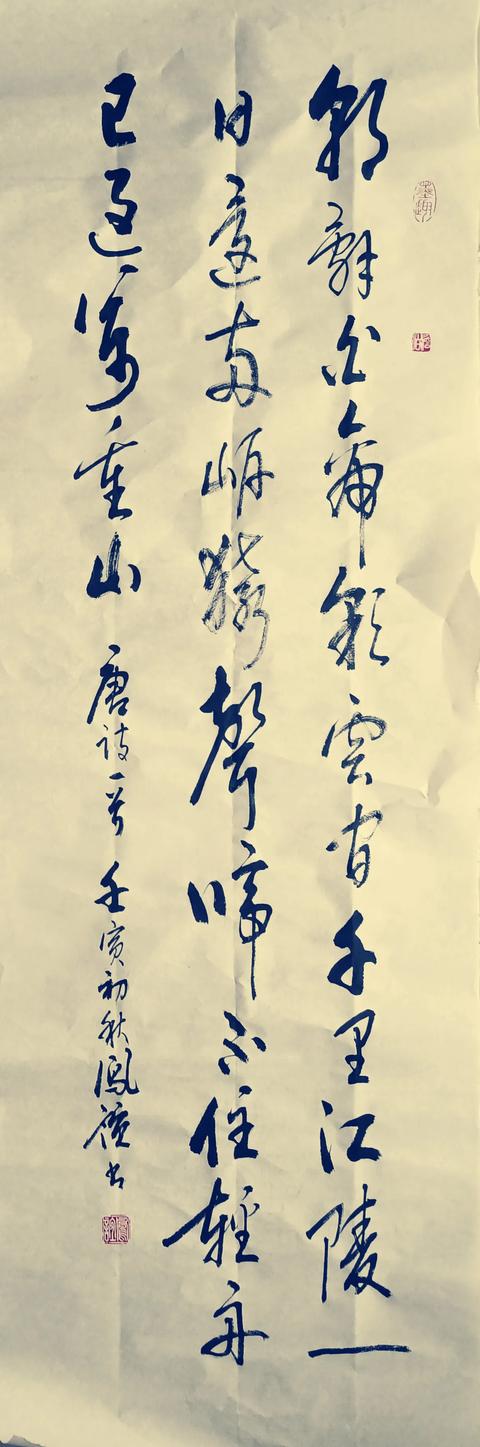 朝辭白帝彩雲間千里江陵一
日還兩岸猿聲啼不住輕舟
已過萬重山 唐詩一首 壬寅初秋鳳書